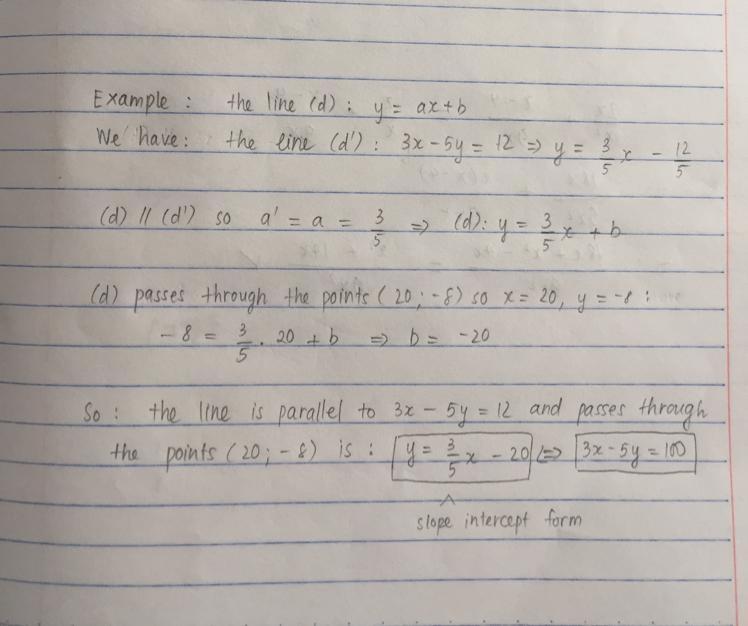 Example : the line (d) : y = ax + b
We have : the line (d') : 3x - 5y = 12 => y = 3/5 x - 12/5
(d) // (d') so a' = a = 3/5 => (d): y = 3/5 x + b
(d) passes through the points (20 ; -8) so x = 20, y = -8 :
-8 = 3/5 . 20 + b => b = -20
So : the line is parallel to 3x - 5y = 12 and passes through
the points (20 ; -8) is : y = 3/5 x - 20 <=> 3x - 5y = 100
slope intercept form